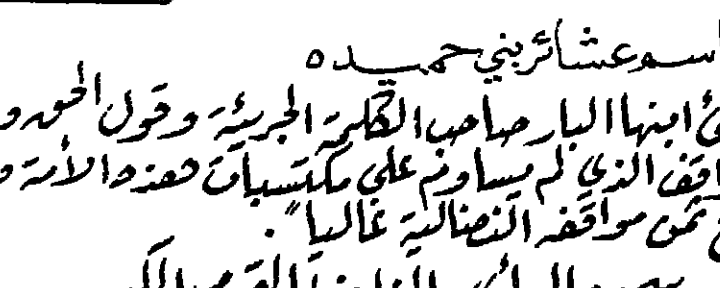 اسم عشائر بني حميده
ئ ابنها البار صاحب الكلمة الجريئة وقول الحق و
اقف الذي لم يساوم على مكتسبات هذه الأمة و
ثمن مواقفه النضالية غالياً".